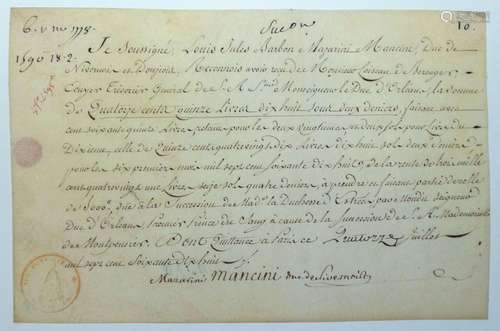 6. 1778.
10.
1590 18.2
Je Soussigné, Louis Jules Barbon Mazarini Mancini, Duc de
Nivernois et Donziois, Reconnois avoir recu de Monsieur
Ecuyer Trésorier General de S. A. Sme Monseigneur le Duc d'Orleans, la somme
de Quatorze cents quinze Livres dix huit sols deux deniers, faisant avec
cent soixante quinze Livres retenus pour les deux Vingtiemes et deux sols pour Livre du
Dixieme, celle de Quinze cent quatrevingt dix Livres dix huit sols deux deniers
pour les six premiers mois mil sept cent soixante dix huit, de la rente de trois mille
cent quatrevingt une Livre seize sols quatre deniers, à prendre et faisant partie de celle
de la Succession de Mad. la Duchesse d' par mondit Seigneur
Duc d'Orleans, Premier Prince du Sang, à cause de la Succession de S. A. Mademoiselle
de Montpensier, Dont Quittance à Paris ce Quatorze Juillet
mil sept cent Soixante dix huit
Mazarini Mancini duc de Nivernois